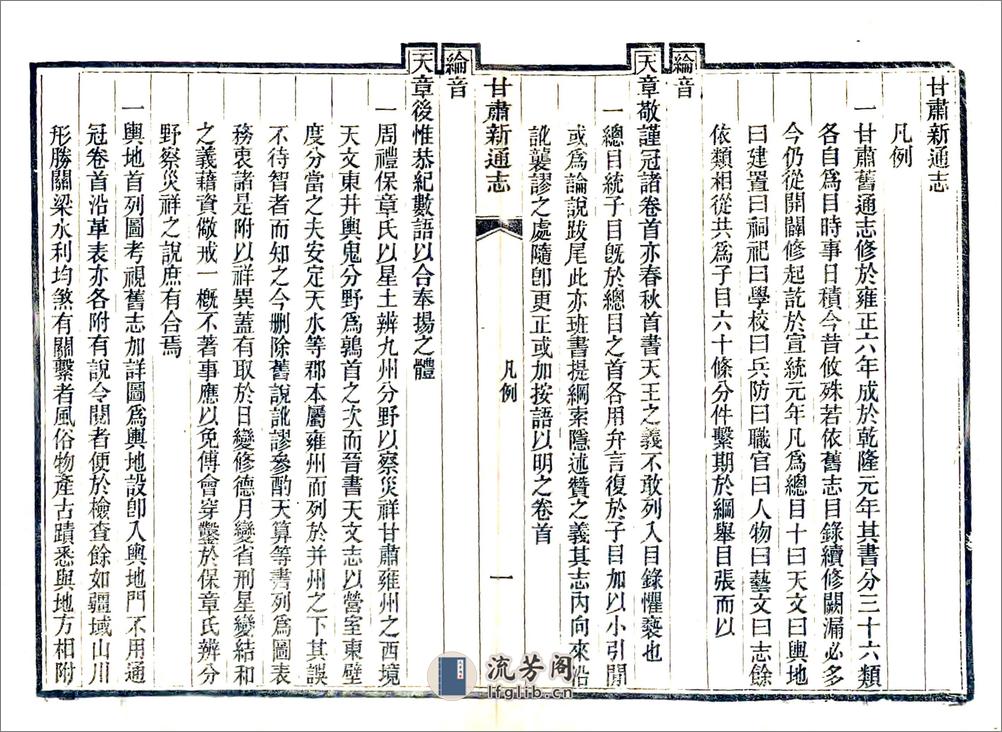 甘肅新通志
凡例
一甘肅舊通志修於雍正六年成於乾隆元年其書分三十六類
各自爲目時事日積今昔攸殊若依舊志目錄續修闕漏必多
今仍從開闢修起訖於宣統元年凡爲總目十曰天文曰輿地
曰建置曰祠祀曰學校曰兵防曰職官曰人物曰藝文曰志餘
依類相從共爲子目六十條分件繫期於綱舉目張而以
綸音
天章敬謹冠諸卷首亦春秋首書天王之義不敢列入目錄懼褻也
一總目統子目既於總目之首各用弁言復於子目加以小引開
或爲論說跋尾此亦班書提綱索隱述贊之義其志內向來沿
訛襲謬之處隨卽更正或加按語以明之卷首
甘肅新通志
凡例
一
綸音
天章後惟恭紀數語以合奉揚之體
一周禮保章氏以星土辨九州分野以察災祥甘肅雍州之西境
天文東井輿鬼分野爲鶉首之次而晉書天文志以營室東壁
度分當之夫安定天水等郡本屬雍州而列於并州之下其誤
不待智者而知之今删除舊說訛謬參酌天算等書列爲圖表
務衷諸是附以祥異蓋有取於日變修德月變省刑星變結和
之義藉資儆戒一概不著事應以免傅會穿鑿於保章氏辨分
野察災祥之說庶有合焉
一輿地首列圖考視舊志加詳圖爲輿地設卽入輿地門不用通
冠卷首沿革表亦各附有說令閱者便於檢查餘如疆域山川
形勝關梁水利均煞有關繫者風俗物產古蹟悉與地方相附
流芳閣
lfglib.cn